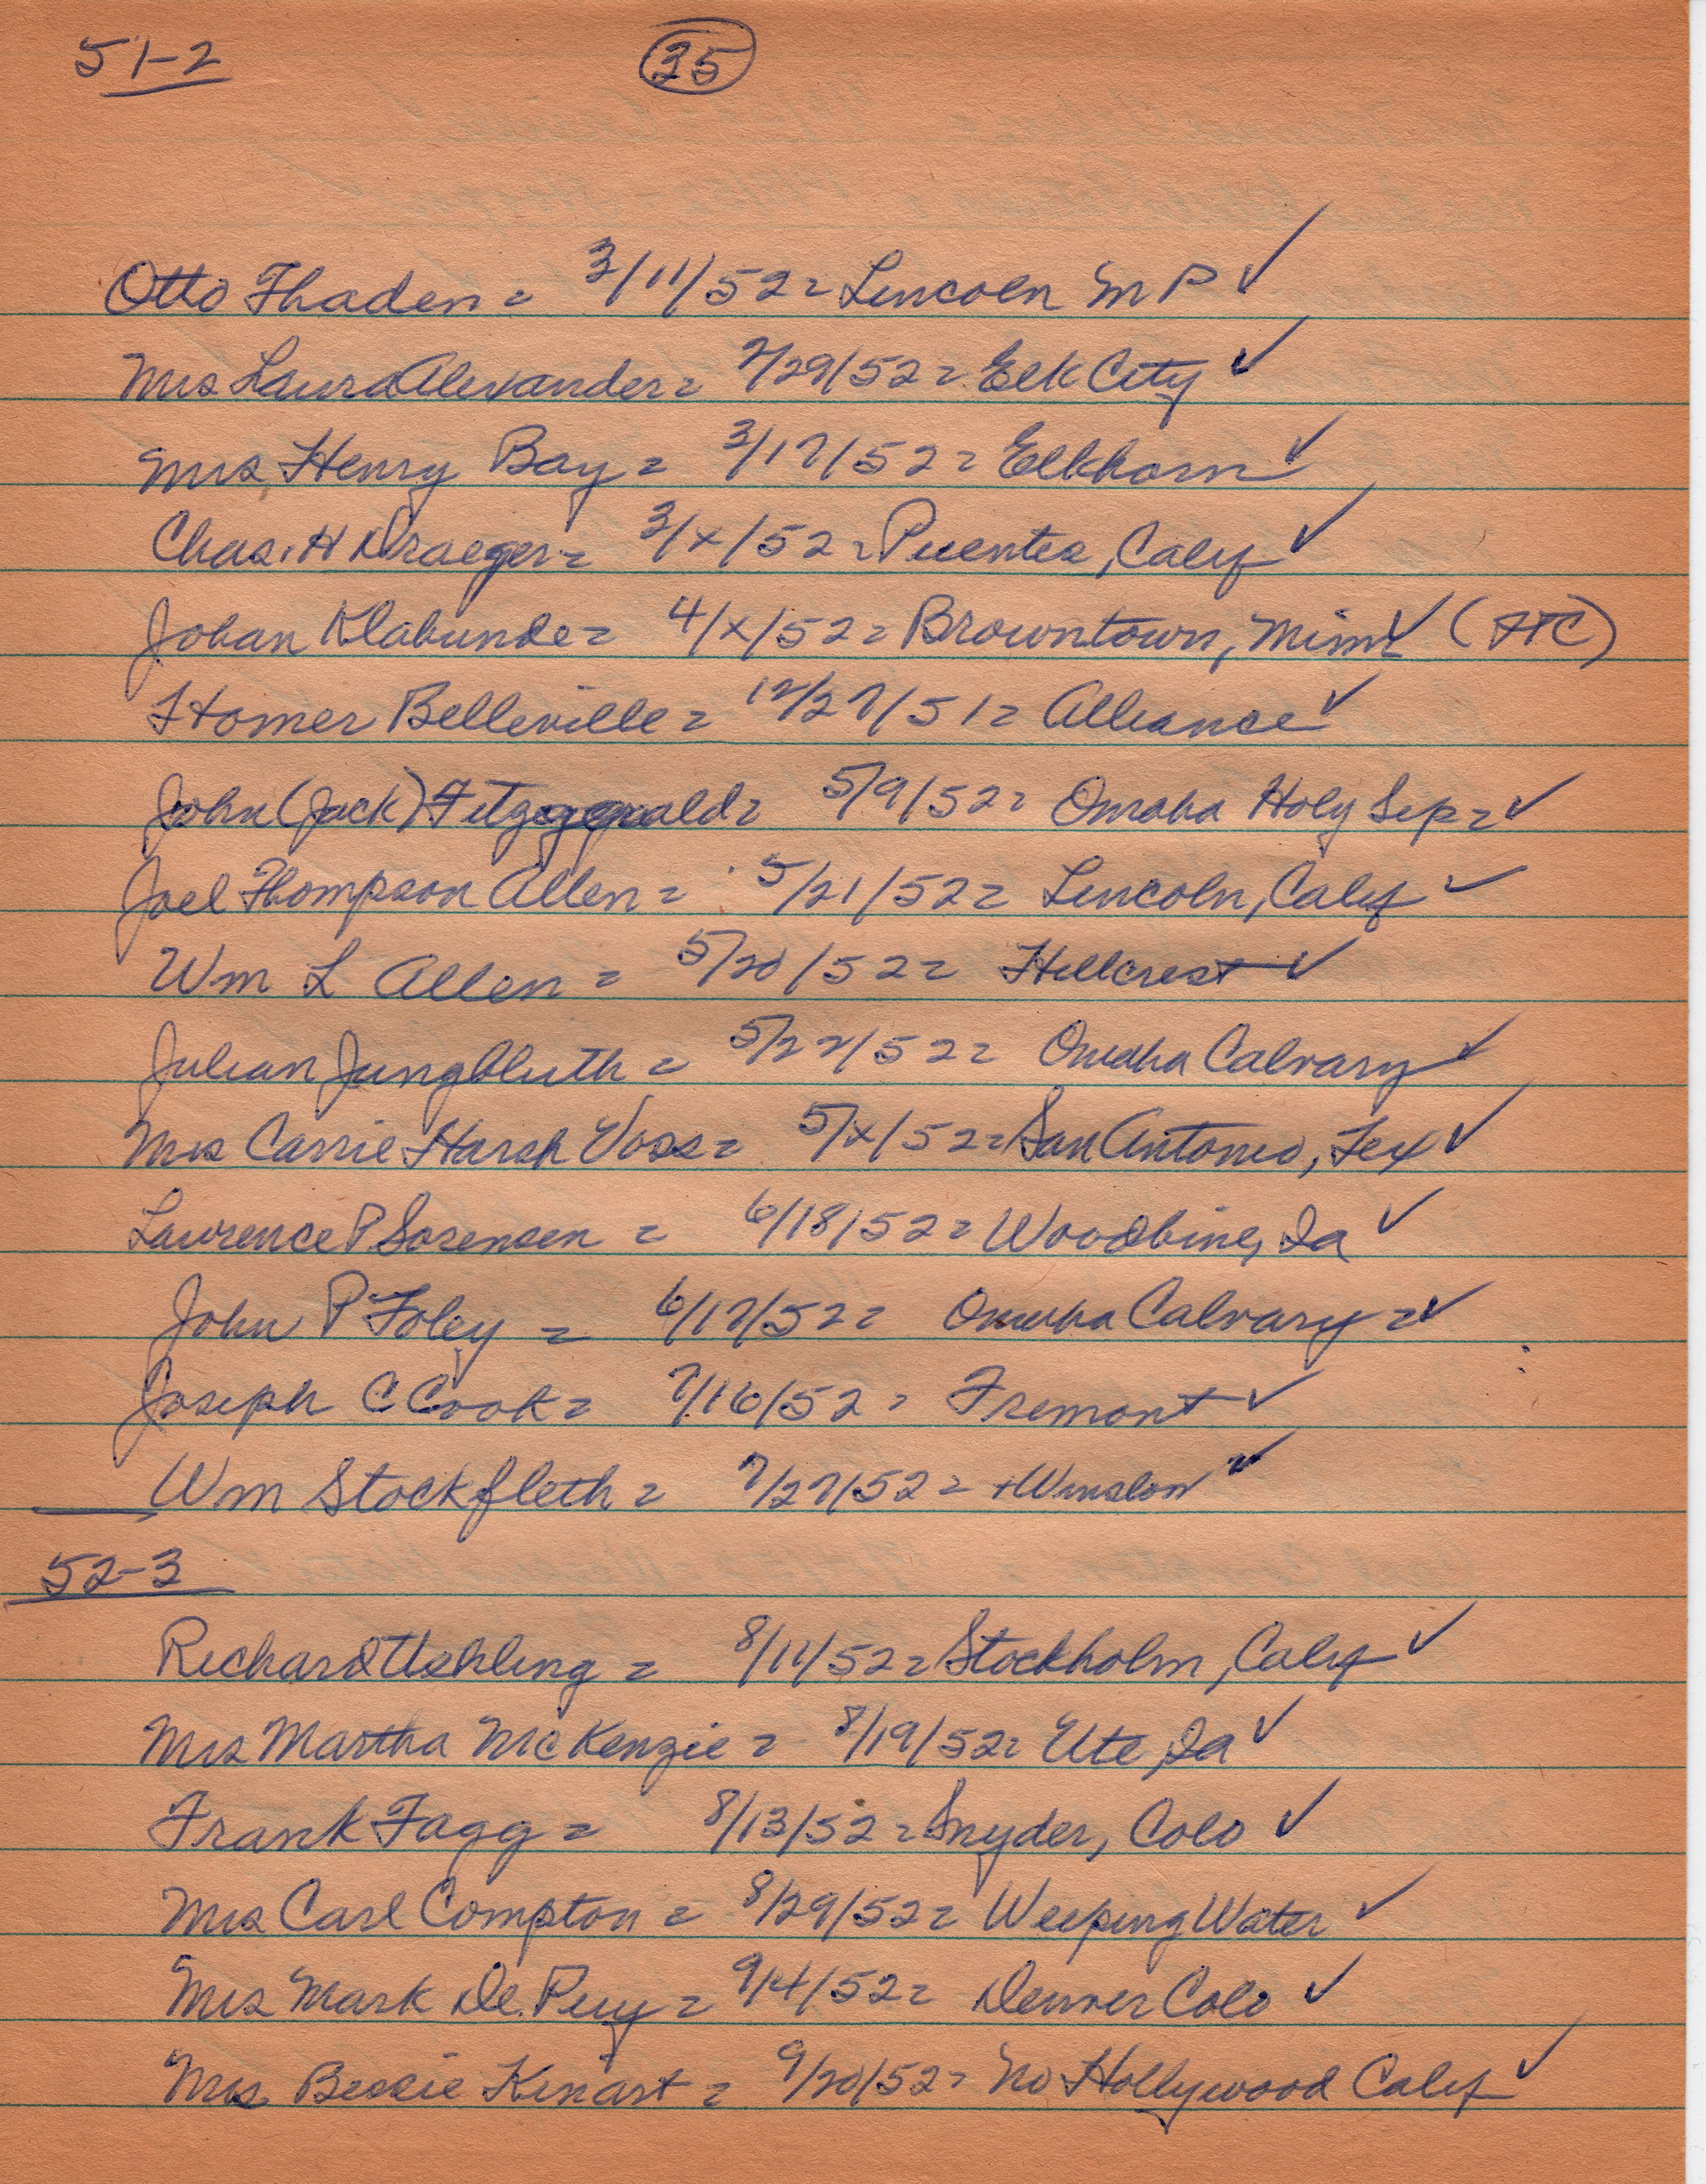 51-2
35
Otto Thaden = 3/11/52 = Lincoln M P ✓
Mrs Laura Alexander = 2/29/52 = Elk City ✓
Mrs Henry Bay = 3/17/52 = Elkhorn ✓
Chas. H Draeger = 3/x/52 = Puente, Calif ✓
Johan Klabunde = 4/x/52 = Browntown, Minn ✓ (HC)
Homer Belleville = 12/27/51 = Alliance ✓
John (Jack) Fitzgerald = 5/9/52 = Omaha Holy Sep = ✓
Joel Thompson Allen = 5/21/52 = Lincoln, Calif ✓
Wm L Allen = 5/20/52 = Hillcrest ✓
Julian Jungbluth = 5/22/52 = Omaha Calvary ✓
Mrs Carrie Harsh Voss = 5/x/52 = San Antonio, Tex ✓
Lawrence P Sorensen = 6/18/52 = Woodbine, Ia ✓
John P Foley = 6/17/52 = Omaha Calvary = ✓
Joseph C Cook = 7/16/52 = Fremont ✓
Wm Stockfleth = 7/27/52 = + Winslow ✓
52-3
Richard Uehling = 8/11/52 = Stockholm, Calif ✓
Mrs Martha McKenzie = 8/19/52 = Ute, Ia ✓
Frank Fagg = 8/13/52 = Snyder, Colo ✓
Mrs Carl Compton = 8/29/52 = Weeping Water ✓
Mrs Mark De Puy = 9/4/52 = Denver Colo ✓
Mrs Bessie Kinart = 9/20/52 = No Hollywood Calif ✓